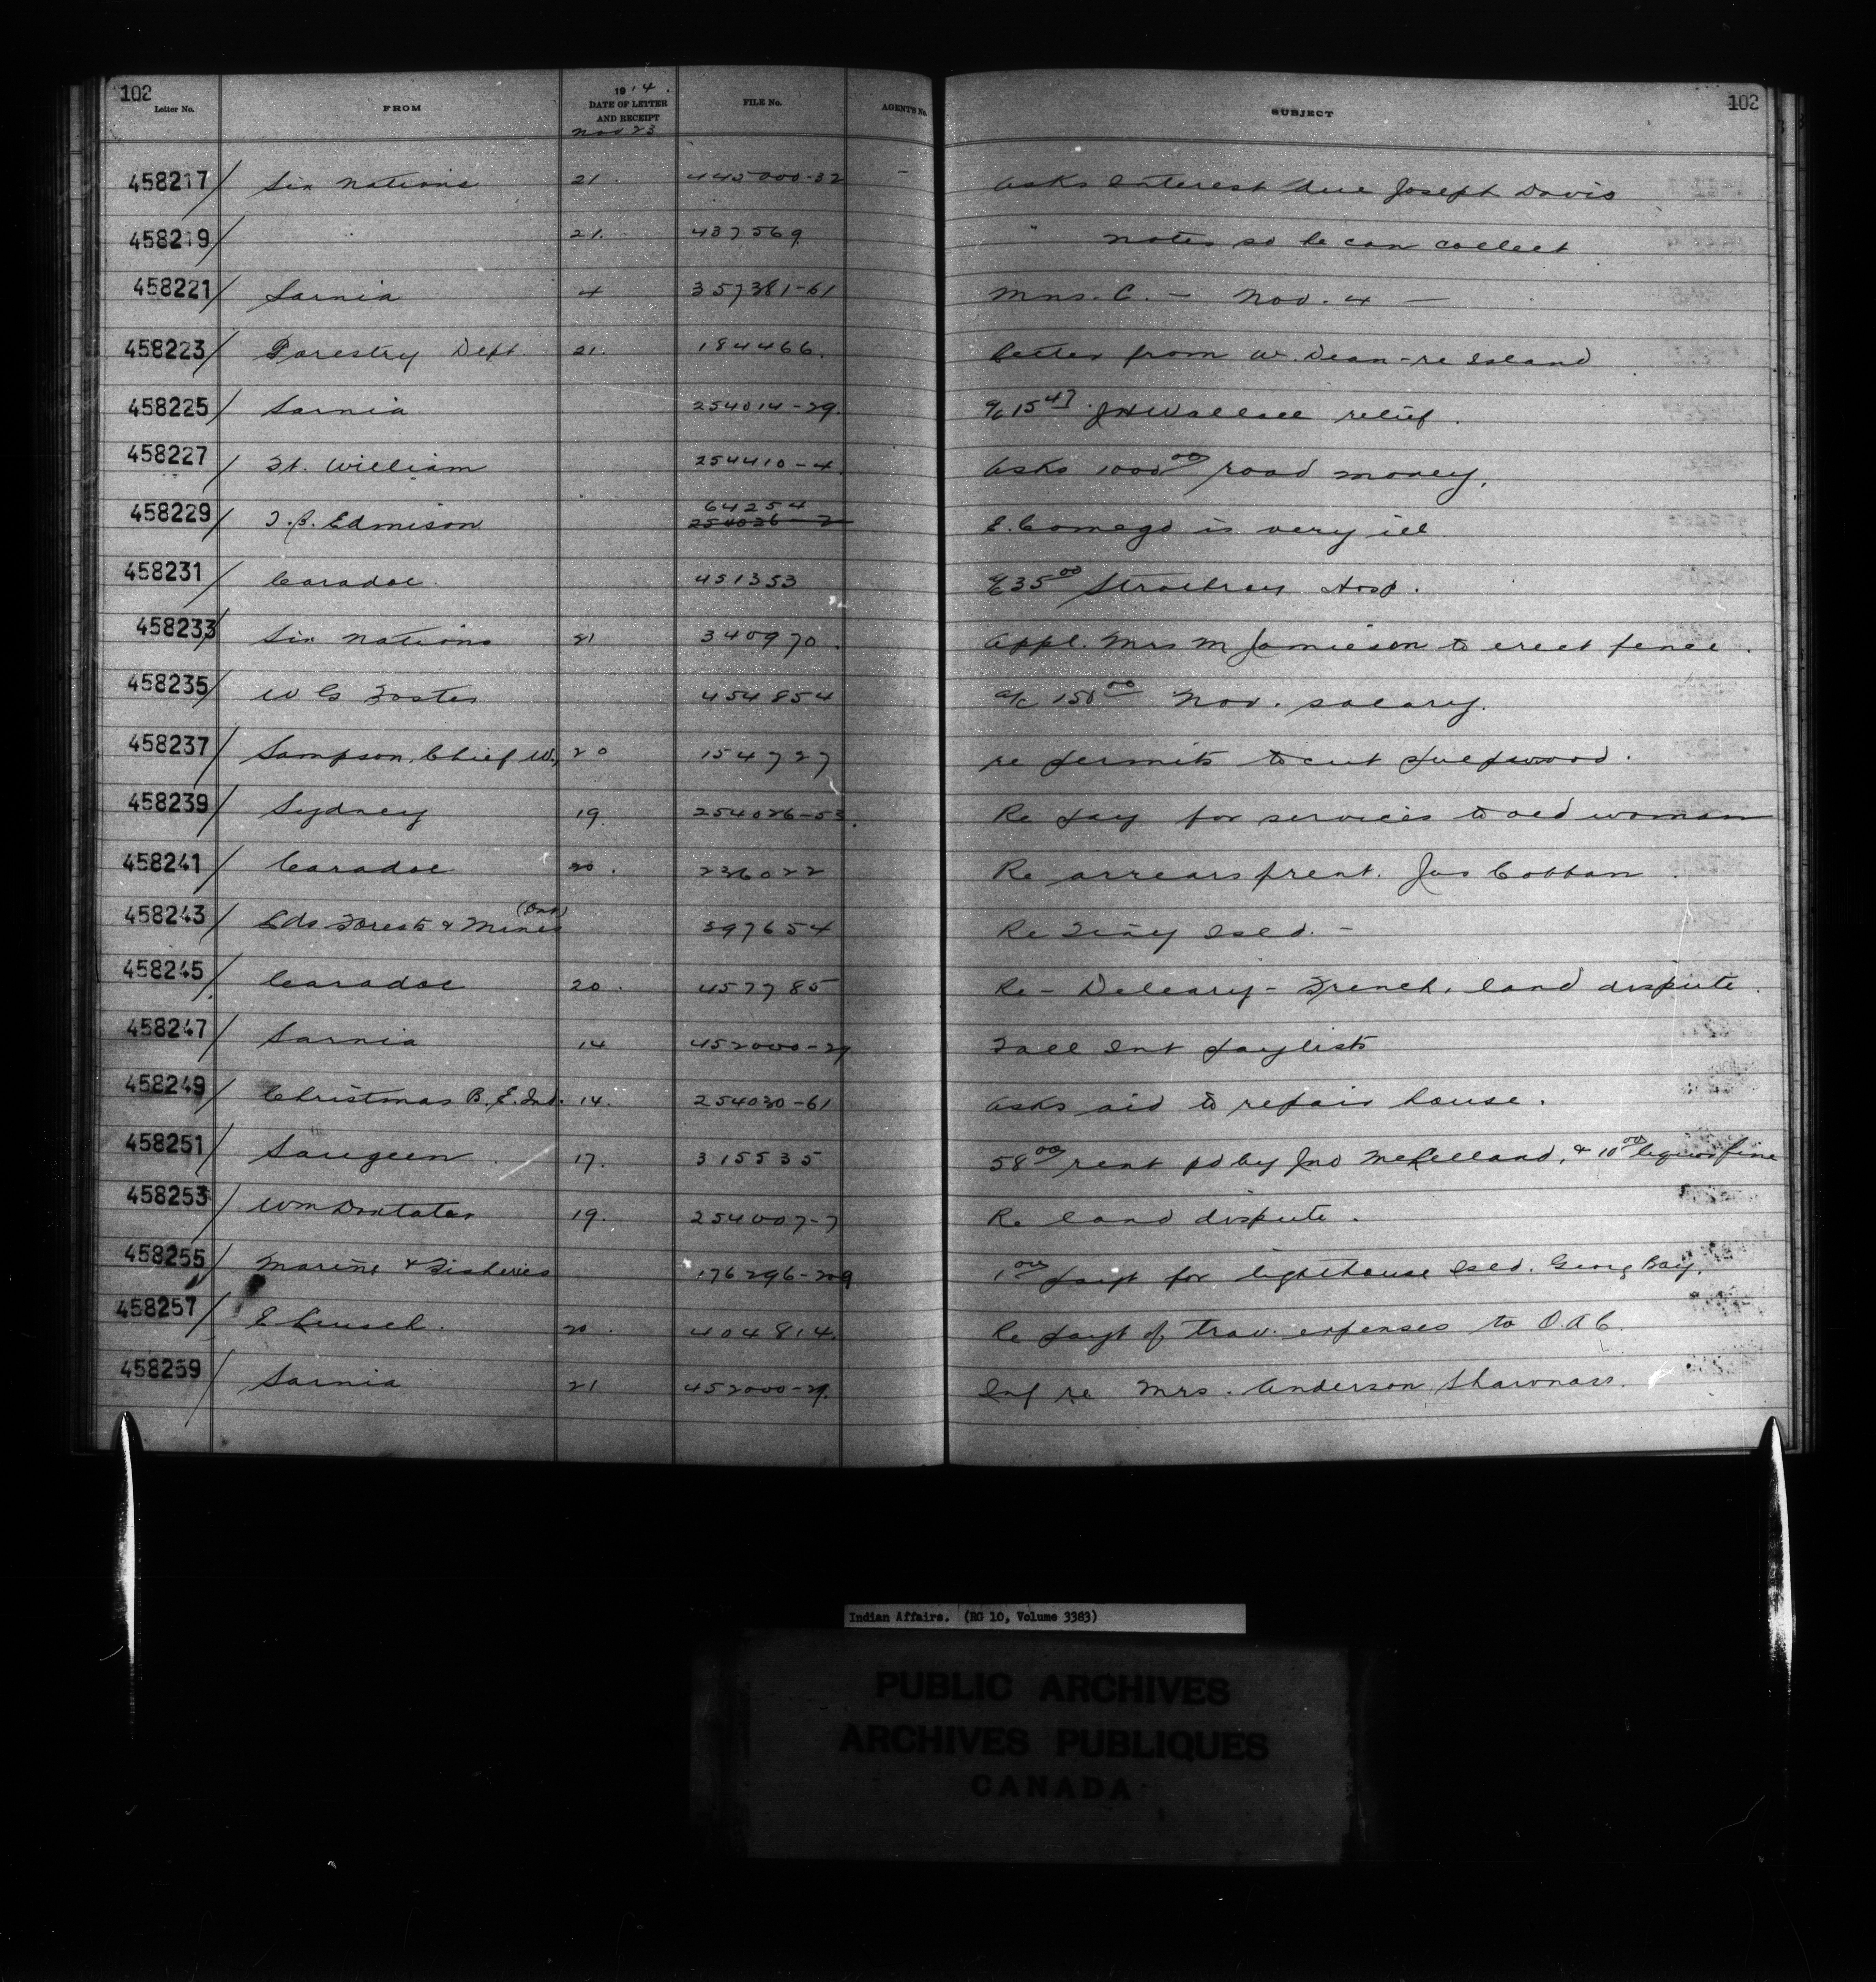 102 102
Letter No. FROM 1914. DATE OF LETTER AND RECEIPT FILE No. AGENT'S No. SUBJECT
Nov 23
458217/ Six Nations 21. 445000-32 - Asks interest due Joseph Davis
458219/ 21. 437569 " notes so he can collect
458221/ Sarnia 4 357381-61 Mns. C. - Nov. 4 -
458223/ Forestry Dept. 21. 184466. Letter from W. Dean - re Island
458225/ Sarnia 254014-29. a/c 15 47 JH Wallace relief.
458227/ Ft. William 254410-4. Asks 1000 00 road money.
458229/ T.B. Edmison 64254 254026-2 E. Comego is very ill
458231/ Caradoc. 451353 a/c 35 00 Strathroy Hosp.
458233/ Six Nations 21 340970. Appl. Mrs M Jamieson to erect fence.
458235/ W G Foster 454854 a/c 150 00 Nov. salary.
458237/ Sampson, Chief W., 20 154727 re permits to cut pulpwood.
458239/ Sydney 19. 254026-53. Re pay for services to old woman
458241/ Caradoc 20. 236022 Re arrears of rent. Jas Cobban.
458243/ Lds Forests & Mines (Ont) 397654 Re Tiny Isld. -
458245/ Caradoc 20. 457785 Re - Deleary - French, land dispute.
458247/ Sarnia 14 452000-29 Fall Int paylists
458249/ Christmas B. E. Ind. 14. 254030-61 Asks aid to repair house.
458251/ Saugeen 17. 315535 58 00 rent pd by Jno McLelland, & 10 00 liquor fine
458253/ Wm 19. 254007-7 Re land dispute.
458255/ Marine & Fisheries 176296-209 1 00 payt for lighthouse Isld. Georg Bay.
458257/ E 20. 404814. Re payt of trav. expenses to O.A.C.
458259/ Sarnia 21 452000-29. Inf re Mrs. Anderson Shawnoss.
Indian Affairs. (RG 10, Volume 3383)
PUBLIC ARCHIVES
ARCHIVES PUBLIQUES
CANADA